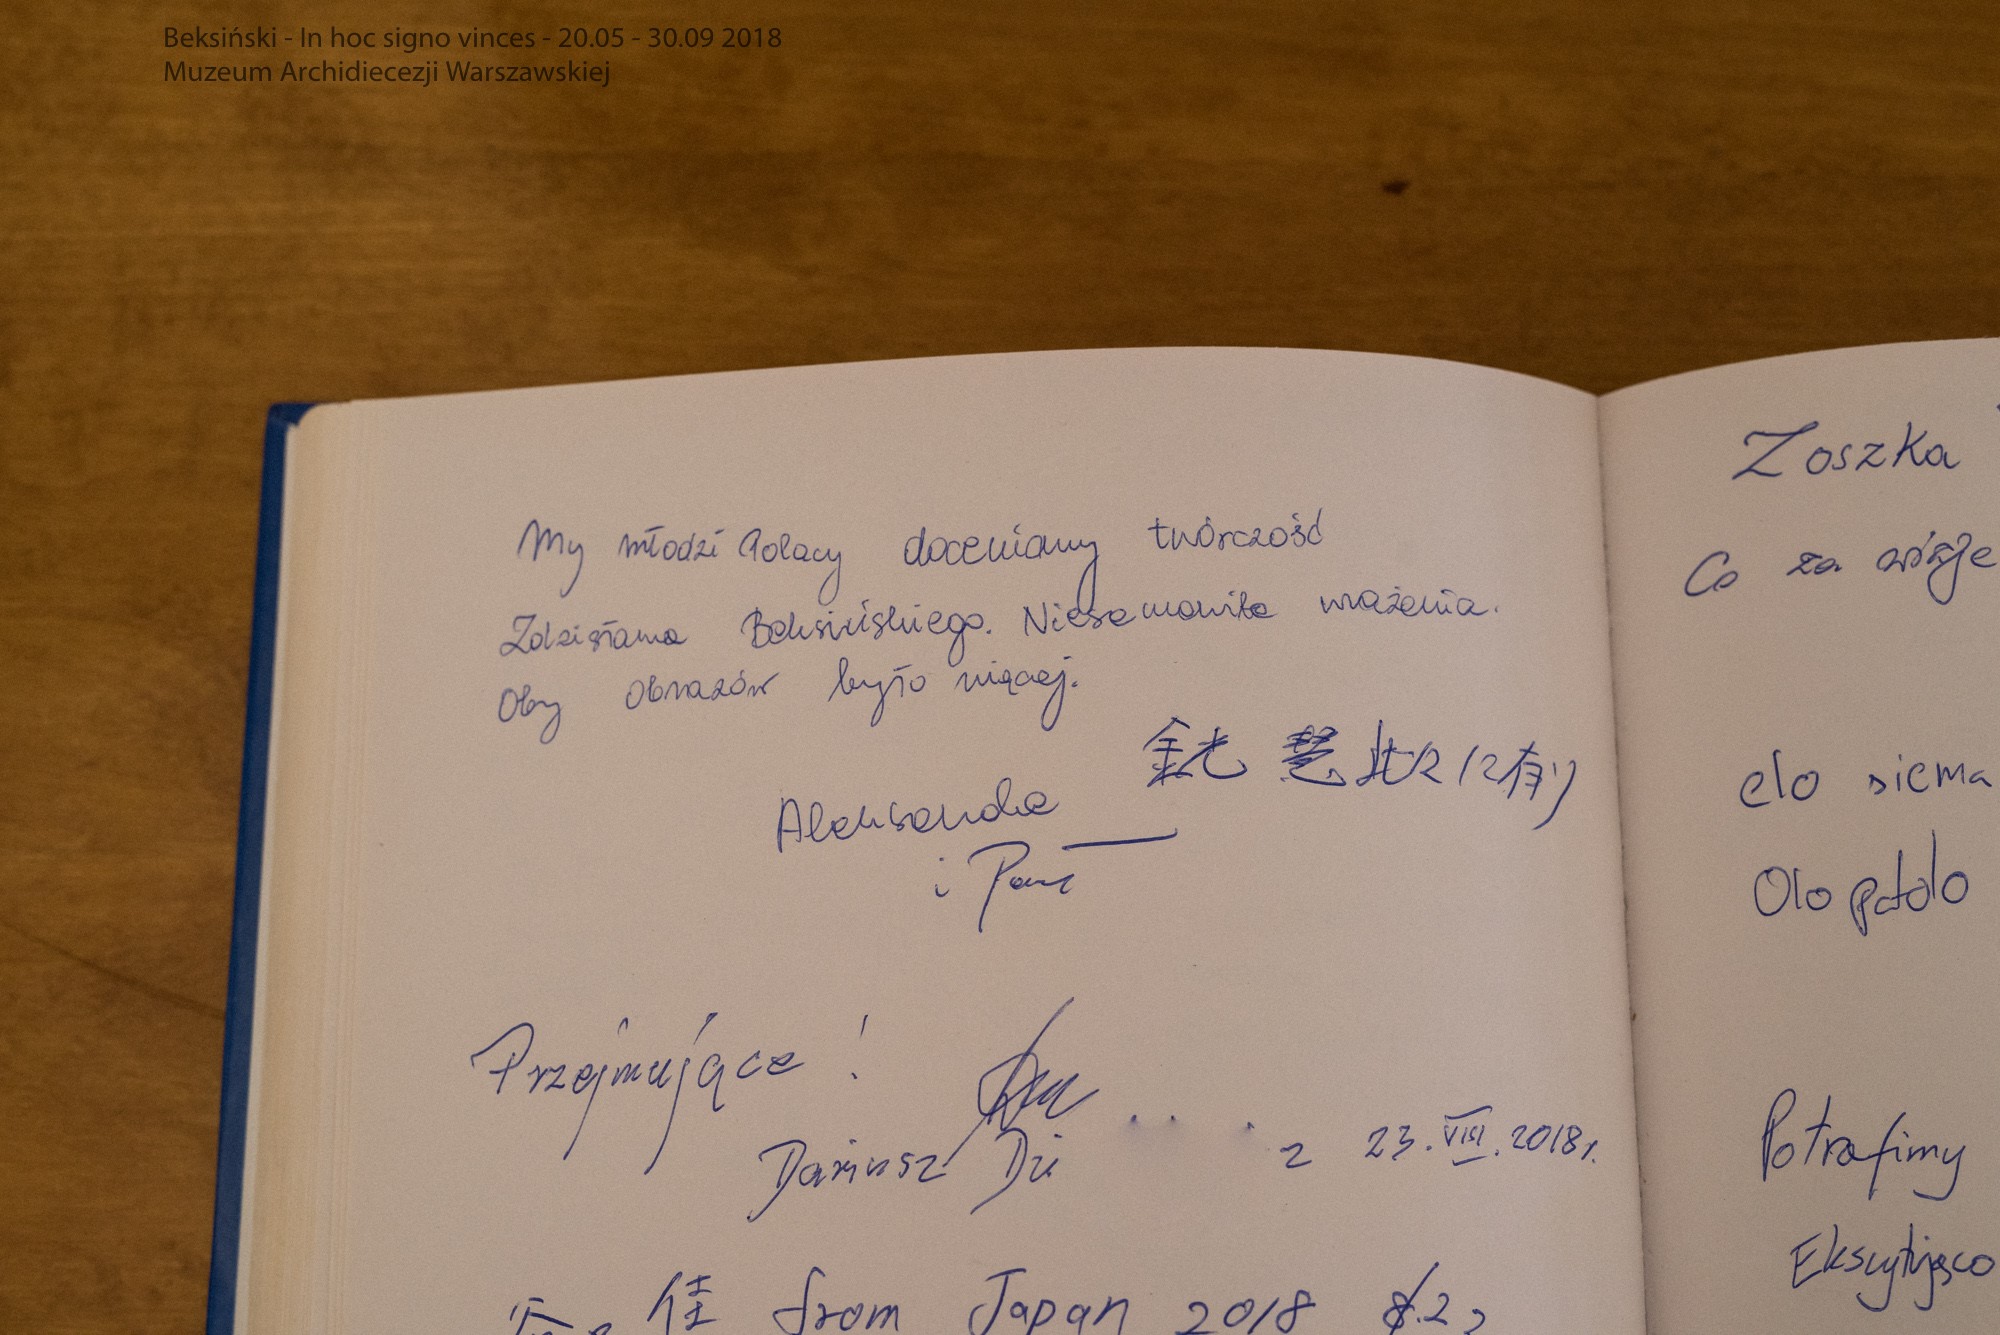 Beksiński - In hoc signo vinces - 20.05 - 30.09 2018
Muzeum Archidiecezji Warszawskiej
My młodzi Polacy doceniamy twórczość
Zdzisława Beksińskiego. Niesamowite wrażenia.
Oby obrazów było więcej.
Aleksandra
i
Przejmujące !
Dariusz 23.VIII.2018r.
佳 from Japan 2018 8.2
Zoszka
Co za wizje
elo siema
Olo patolo
Potrafimy
Ekscytująco